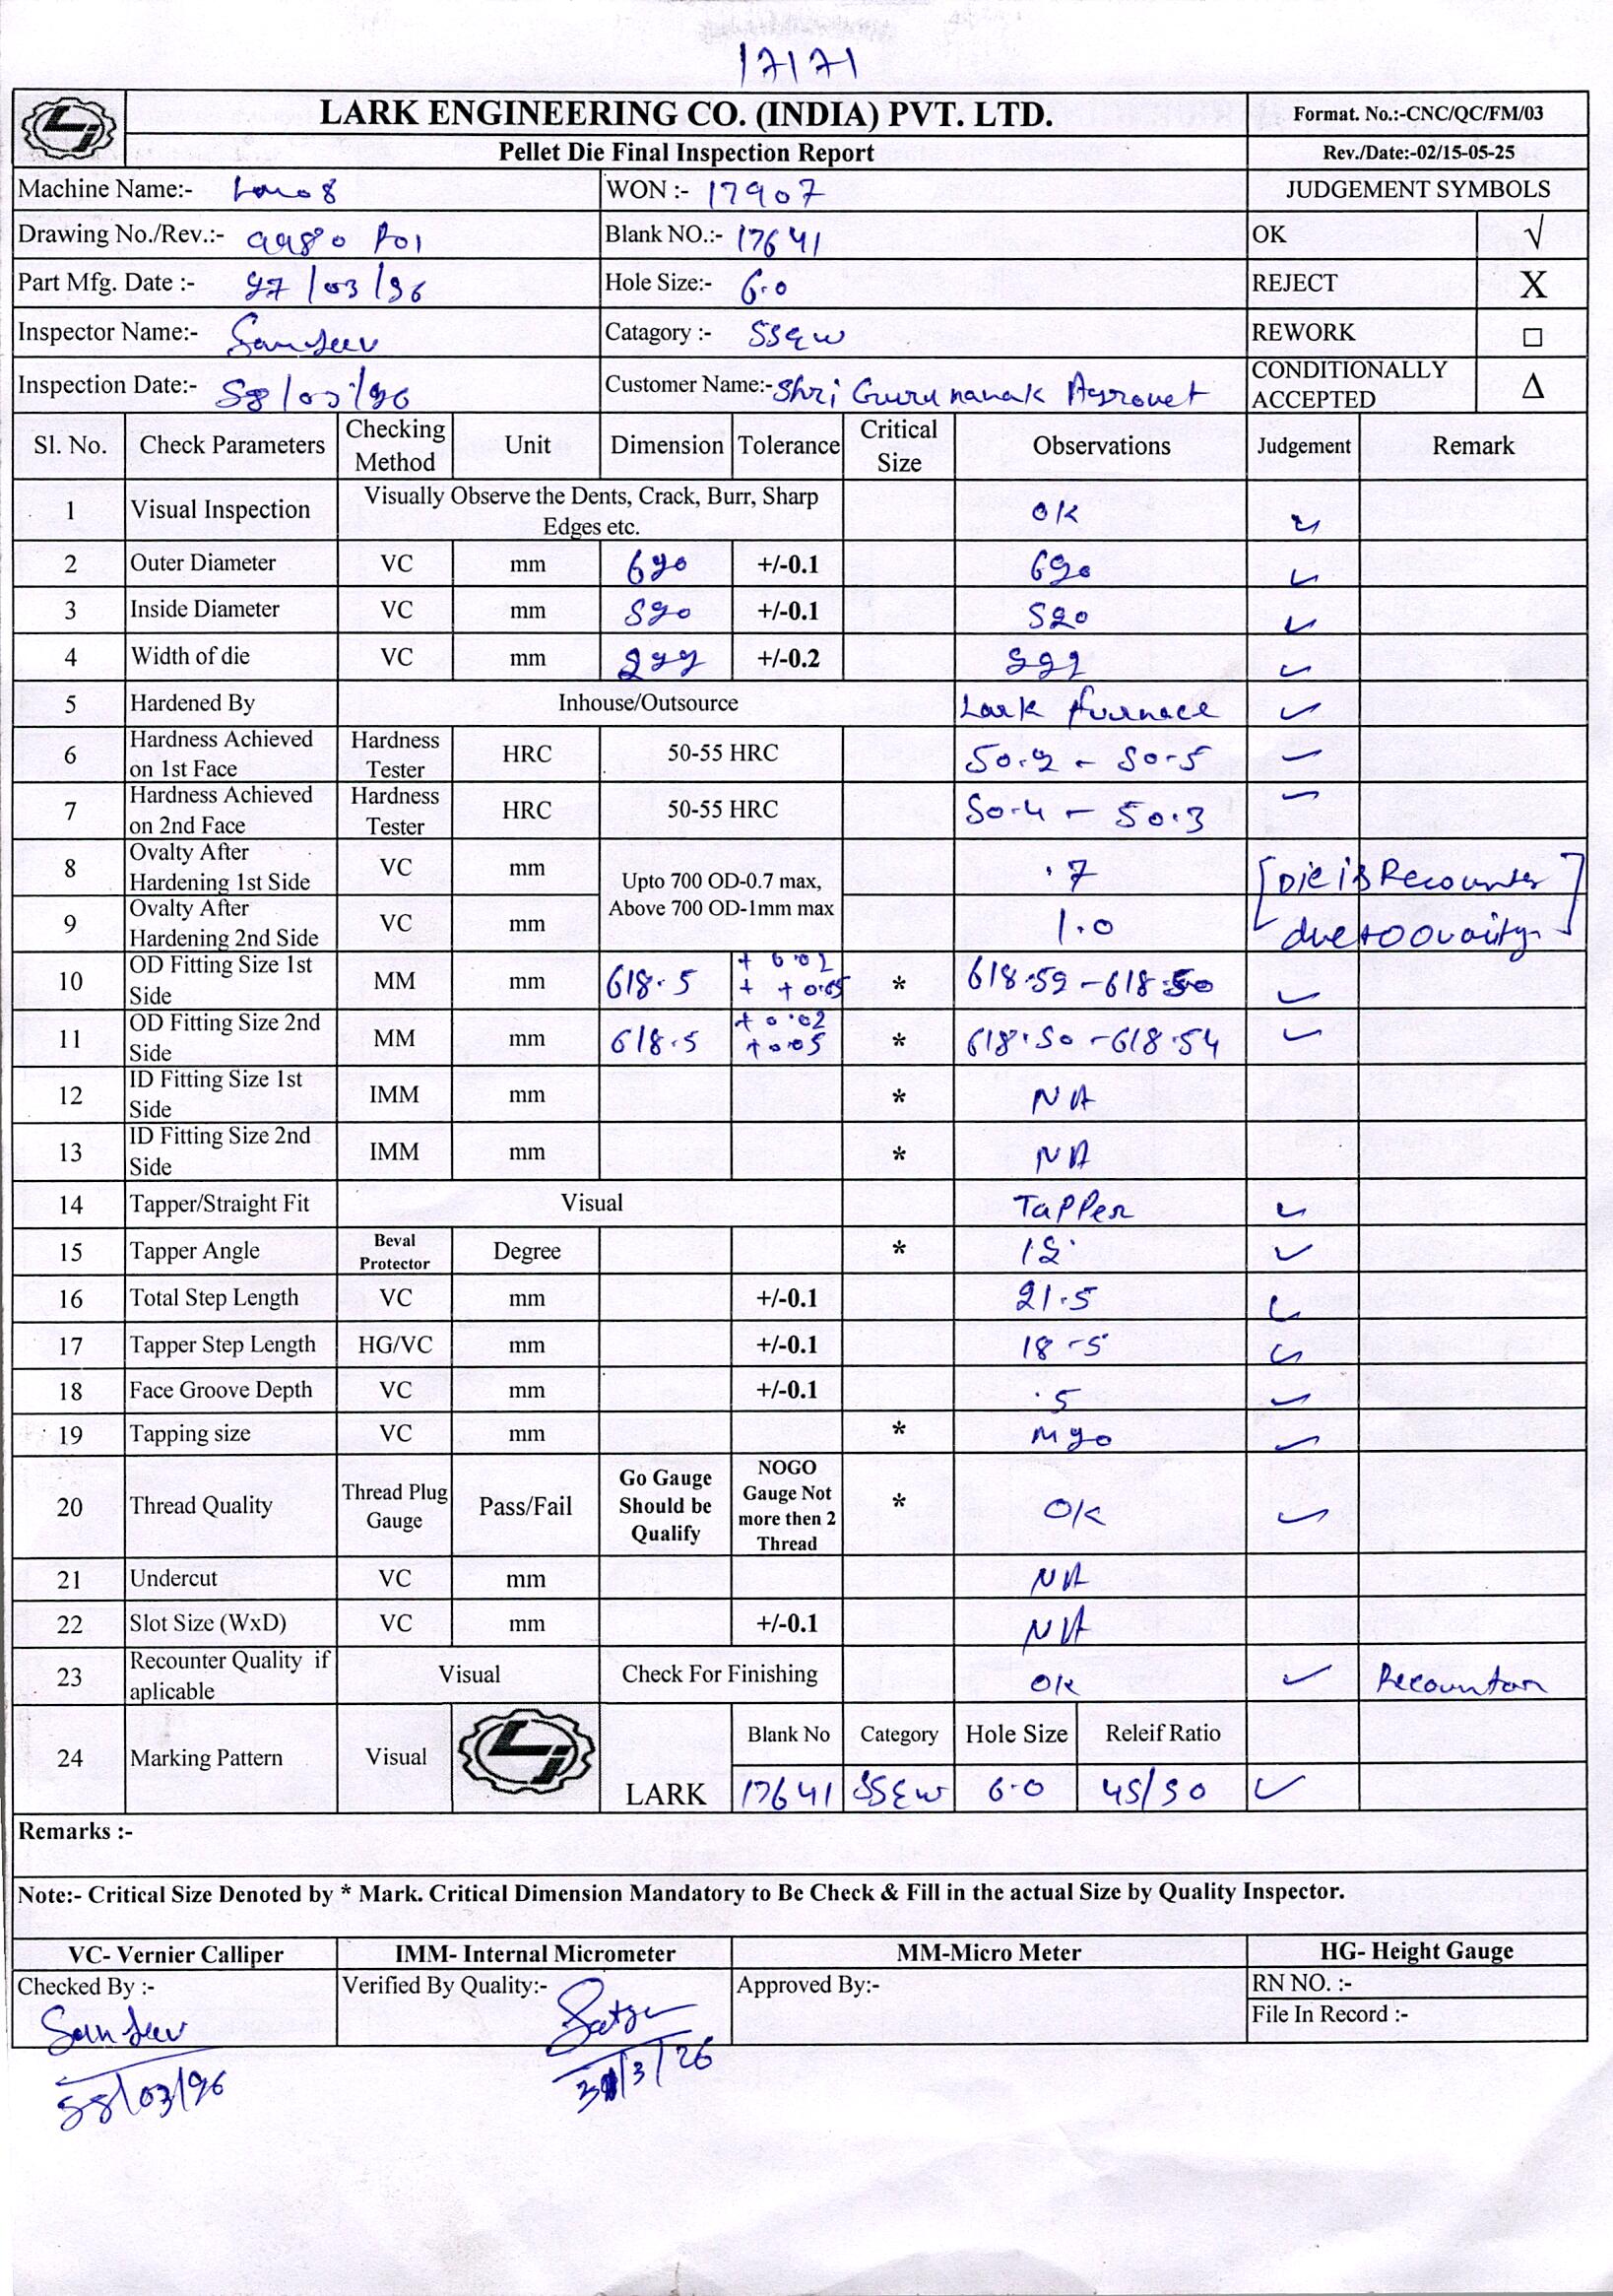 17171
LARK ENGINEERING CO. (INDIA) PVT. LTD.
Format. No.:-CNC/QC/FM/03
Pellet Die Final Inspection Report
Rev./Date:-02/15-05-25
Machine Name:-
WON :- 17907
JUDGEMENT SYMBOLS
Drawing No./Rev.:-
Blank NO.:- 17641
OK √
Part Mfg. Date :- 27/03/26
Hole Size:- 6.0
REJECT X
Inspector Name:- Sanjeev
Catagory :- SS&W
REWORK □
Inspection Date:- 28/03/26
Customer Name:- Shri Guru nanak Agrovet
CONDITIONALLY ACCEPTED Δ
Sl. No. Check Parameters Checking Method Unit Dimension Tolerance Critical Size Observations Judgement Remark
1 Visual Inspection Visually Observe the Dents, Crack, Burr, Sharp Edges etc. OK ✓
2 Outer Diameter VC mm 620 +/-0.1 620 ✓
3 Inside Diameter VC mm 520 +/-0.1 520 ✓
4 Width of die VC mm 222 +/-0.2 222 ✓
5 Hardened By Inhouse/Outsource Lark furnace ✓
6 Hardness Achieved on 1st Face Hardness Tester HRC 50-55 HRC 50.2 - 50.5 ✓
7 Hardness Achieved on 2nd Face Hardness Tester HRC 50-55 HRC 50.4 - 50.3 ✓
8 Ovalty After Hardening 1st Side VC mm Upto 700 OD-0.7 max, Above 700 OD-1mm max .7 [Die is Recounter
9 Ovalty After Hardening 2nd Side VC mm 1.0 due to Ovality]
10 OD Fitting Size 1st Side MM mm 618.5 + 0.02 + +0.05 * 618.52 - 618.50 ✓
11 OD Fitting Size 2nd Side MM mm 618.5 +0.02 +0.05 * 618.50 - 618.54 ✓
12 ID Fitting Size 1st Side IMM mm * NA
13 ID Fitting Size 2nd Side IMM mm * NA
14 Tapper/Straight Fit Visual Tapper ✓
15 Tapper Angle Beval Protector Degree * 12° ✓
16 Total Step Length VC mm +/-0.1 21.5 ✓
17 Tapper Step Length HG/VC mm +/-0.1 18.5 ✓
18 Face Groove Depth VC mm +/-0.1 .5 ✓
19 Tapping size VC mm * M20 ✓
20 Thread Quality Thread Plug Gauge Pass/Fail Go Gauge Should be Qualify NOGO Gauge Not more then 2 Thread * OK ✓
21 Undercut VC mm NA
22 Slot Size (WxD) VC mm +/-0.1 NA
23 Recounter Quality if aplicable Visual Check For Finishing OK ✓ Recounter
24 Marking Pattern Visual LARK Blank No Category Hole Size Releif Ratio
17641 SS&W 6.0 45/50 ✓
Remarks :-
Note:- Critical Size Denoted by * Mark. Critical Dimension Mandatory to Be Check & Fill in the actual Size by Quality Inspector.
VC- Vernier Calliper IMM- Internal Micrometer MM-Micro Meter HG- Height Gauge
Checked By :- Verified By Quality:- Approved By:- RN NO. :-
File In Record :-
Sanjeev
28/03/26